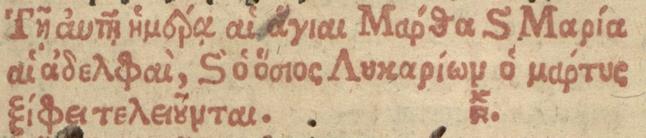 Τῇ αὐτῇ ἡμέρᾳ αἱ ἅγιαι Μάρθα ϗ Μαρία
αἱ ἀδελφαὶ, ϗ ὁ ὅσιος Λυκαρίων ὁ μάρτυς
ξίφει τελειοῦνται.